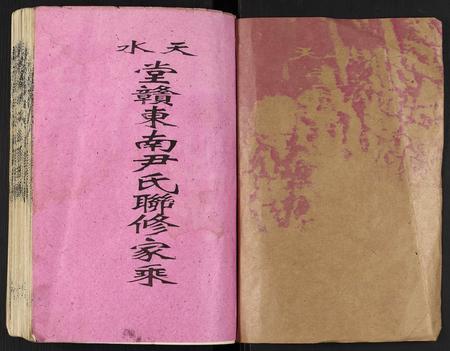 天水
堂贛東南尹氏聯修家乘
天